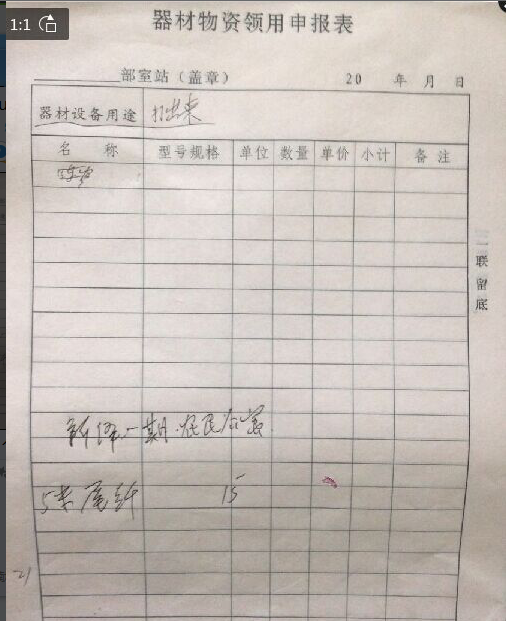 1:1
器材物资领用申报表
部室站（盖章） 20 年 月 日
器材设备用途 打出来
名 称 型号规格 单位 数量 单价 小计 备注
二联留底
一期
5 15
21